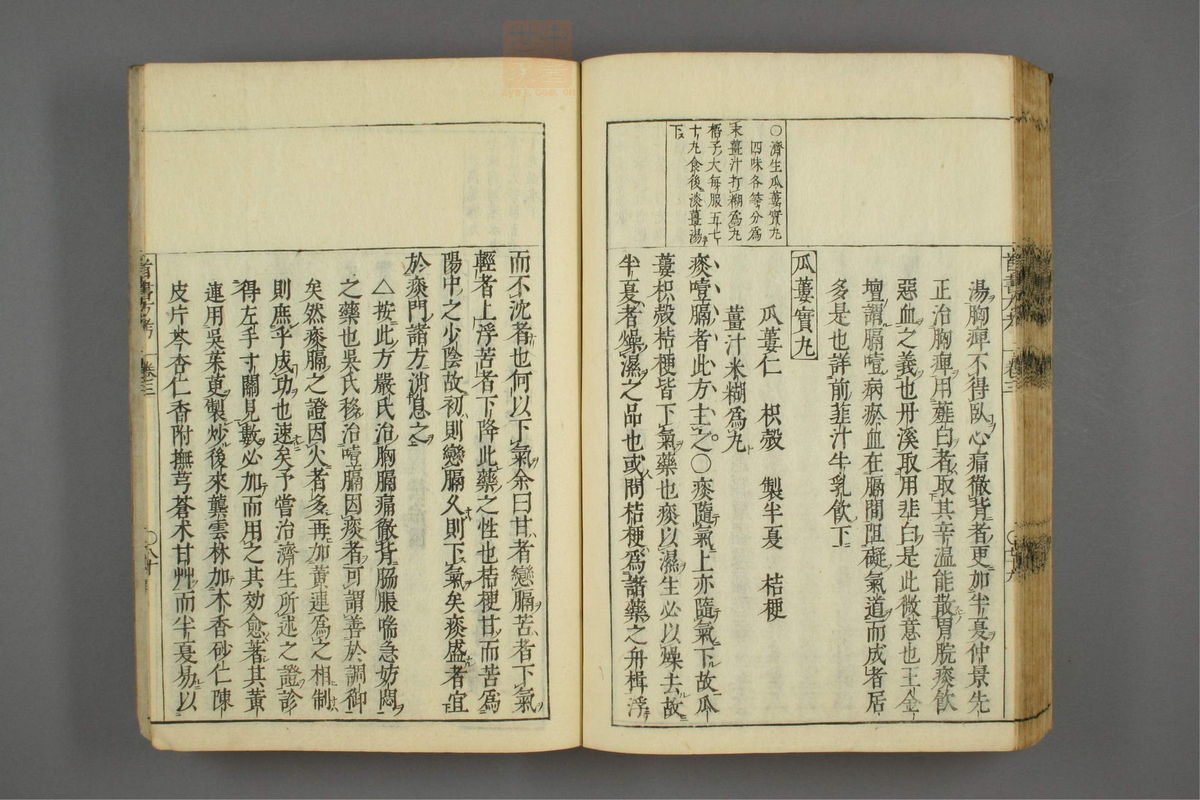 湯胸痺不得臥心痛徹背者更加半夏仲景先
正治胸痺用薤白者取其辛温能散胃脘痰飮
惡血之義也丹溪取用韭白是此微意也王金
壇謂膈噎病瘀血在膈間阻礙氣道而成者居
多是也詳前韮汁牛乳飮下
○濟生瓜蔞實丸
四味各等分爲
末薑汁打糊爲丸
梧子大每服五七
十丸食後淡薑湯
下
瓜蔞實丸
瓜蔞仁　枳殼　製半夏　桔梗
薑汁米糊爲丸
痰噎膈者此方主之○痰隨氣上亦隨氣下故瓜
蔞枳殼桔梗皆下氣藥也痰以濕生必以燥去故
半夏者燥濕之品也或問桔梗爲諸藥之舟楫浮
而不沈者也何以下氣余曰甘者戀膈苦者下氣
輕者上浮苦者下降此藥之性也桔梗甘而苦爲
陽中之少陰故初則戀膈久則下氣矣痰盛者宜
於痰門諸方消息之
△按此方嚴氏治胸膈痛徹背脇脹喘急妨悶
之藥也吳氏移治噎膈因痰者可謂善於調御
矣然痰膈之證因火者多再加黄連爲之相制
則庶乎成功也速矣予嘗治濟生所述之證診
得左手寸關見數必加而用之其効愈著其黄
連用吳茱萸製炒後來龔雲林加木香砂仁陳
皮片芩杏仁香附撫芎蒼术甘艸而半夏易以
卷三